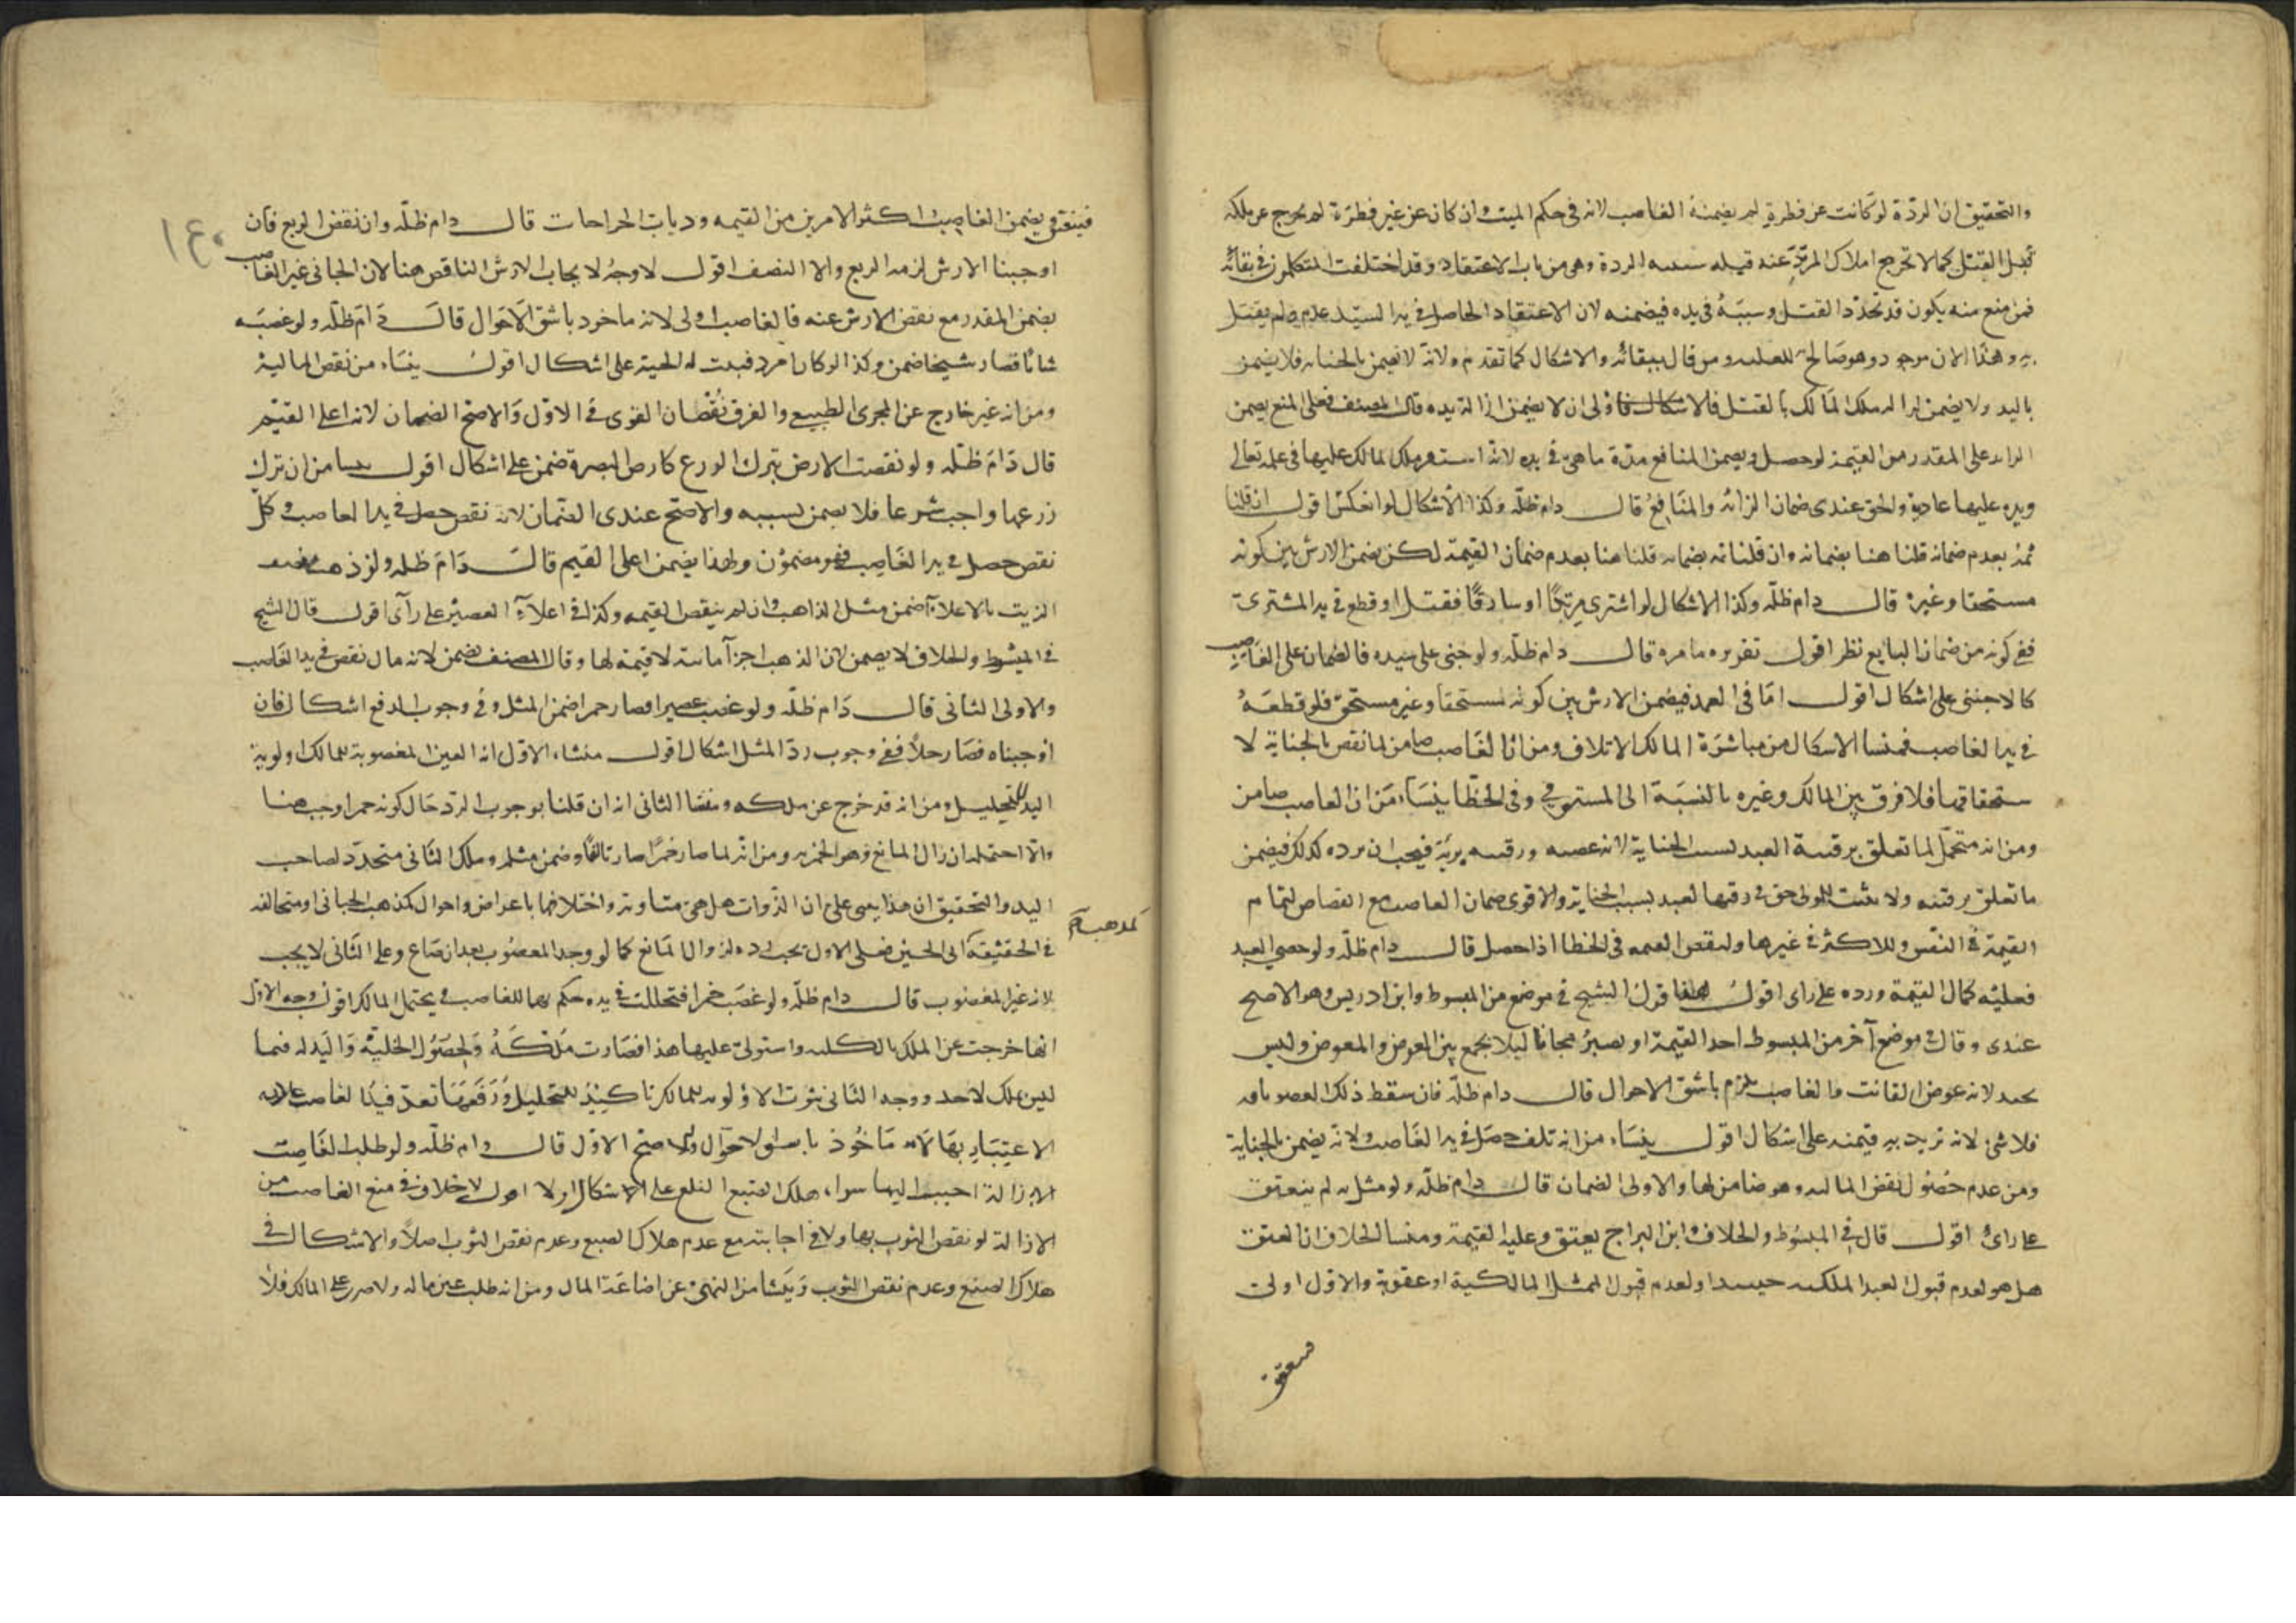 والتحقيق ان الردّة لو كانت عن فطرة لم يضمنه الغاصب لانه في حكم الميت وان كان عن غير فطرة لم يخرج عن ملكه
قبل القتل كما لا تخرج املاك المرتد عنه قبله الردة وهى من باب الاعتقاد وقد اختلفت المتكلمون في بقائه
فمن منع منه يكون قد تجدد القتل وسببه في يده فيضمنه لان الاعتقاد الحاصل في يد السيد عدم ولم يقتل
به وهذا الان موجود وهو صالح ومن قال ببقائه والاشكال كما تقدم ولانه لا يضمن بالجناية فلا يضمن
باليد ولا يضمن ازاله ملك المالك بالقتل فالاشكال فاولى ان لا يضمن ازالة يده قال المصنف فعلى المنع يضمن
الزائد على المقدر من القيمة لو حصل ويضمن المنافع مدة ما هى في يده لانه استقر ملك المالك عليها في علمه تعالى
ويده عليها عادية والحق عندى ضمان الزائد والمنافع قال دام ظلّه وكذا الاشكال لو انعكس اقول ان قلنا
ثمة بعدم ضمانه قلنا هنا بضمانه وان قلنا ثمة بضمانه قلنا هنا بعدم ضمان القيمة لكن يضمن الارش بين كونه
مستحقا وغيره قال دام ظلّه وكذا الاشكال لو اشترى مرتدًا او سارقًا فقتل او قطع في يد المشترى
ففى كونه من ضمان البايع نظر اقول تقريره ما مره قال دام ظلّه ولو جنى على سيده فالضمان على الغاصب
كالاجنبى على اشكال اقول امّا في العمد فيضمن الارش بين كونه مستحقا وغير مستحق فلو قطعه
في يد الغاصب فمنشا الاشكال من مباشرة المالك الاتلاف ومن ان الغاصب ضامن لما نقص بالجناية لا
ستحقاقها فلا فرق بين المالك وغيره بالنسبة الى المستوفي وفى الخطا ينشاء من ان الغاصب ضامن
ومن انه متحمّل لما تعلق برقبة العبد لسبب الجناية لانه غصبه ورقبته بريّة فيجب ان يرده كذلك فيضمن
ما تعلق برقبته ولا يثبت للمولى حق في رقبة العبد بسبب الجناية والاقوى ضمان الغاصب مع القصاص لتمام
القيمة في النفس وللاكثر في غيرها ولنقص القيمه فى الخطا اذا حصل قال دام ظلّه ولو خصى العبد
فعليه كمال القيمة ورده على راى اقول هذا قول الشيخ في موضع من المبسوط وابن ادريس وهو الاصح
عندى وقال في موضع آخر من المبسوط احد القيمة او يصبر مجانا ليلا يجمع بين العوض والمعوض وليس
بجيد لانه عوض الفائت والغاصب ملزم باشق الاحوال قال دام ظلّه فان سقط ذلك العضو بافه
فلا شئ لانه تزيد به قيمته على اشكال اقول ينشاء من انه تلف حصل في يد الغاصب ولانه يضمن بالجناية
ومن عدم حصول نقص الماليه وهو ضامن لها والاولى الضمان قال دام ظلّه ولو مثل به لم ينعتق
على راى اقول قال في المبسوط والخلاف وابن البراج يعتق وعليه القيمة ومنشا الخلاف ان العتق
هل هو لعدم قبول العبد الملكيه حينئذ او لعدم قبول الممثل المالكية او عقوبة والاول اولى
فينعتق
فينعتق ويضمن الغاصب اكثر الامرين من القيمه وديات الجراحات قال دام ظلّه وان نقص الربع فان
اوجبنا الارش لزمه الربع والا النصف اقول لا وجه لايجاب الارش الناقص هنا لان الجانى غير الغاصب
يضمن المقدر مع نقص الارش عنه فالغاصب اولى لانه ماخوذ باشق الاحوال قال دام ظلّه ولو غصبه
شابًا فصار شيخا ضمن وكذا لو كان امرد فنبتت له لحية على اشكال اقول ينشاء من نقص المالية
ومن انه غير خارج عن المجرى الطبيعى والفرق نقصان القوى في الاوّل والاصح الضمان لانه اعلى القيم
قال دام ظلّه ولو نقصت الارض بترك الزرع كارض البصرة ضمن على اشكال اقول ينشا من ان ترك
زرعها واجب شرعا فلا يضمن بسببه والاصح عندى الضمان لانه نقص حصل في يد الغاصب وكلّ
نقص حصل في يد الغاصب فهو مضمون ولهذا يضمن اعلى القيم قال دام ظله ولو ذهب نصف
الزيت بالاغلاء ضمن مثل الذاهب وان لم ينقص القيمه وكذا في اغلاء العصير على رأى اقول قال الشيخ
في المبسوط والخلاف لا يضمن لان الذهب اجزآ مائية لا قيمة لها وقال المصنف يضمن لانه مال نقص في يد الغاصب
والاولى الثانى قال دام ظلّه ولو غصب عصيرا فصار خمرا ضمن المثل وفي وجوب الدفع اشكال فان
اوجبناه فصار خلاً ففي وجوب ردّ المثل اشكال اقول منشاء الاوّل ان العين المغصوبة للمالك اولوية
اليد للتخليل ومن انه قد خرج عن ملكه ومنشا الثانى انه ان قلنا بوجوب الرد حال كونه خمرا وجب هنا
والا احتمله ان زال المانع وهو الخمريه ومن انه لما صار خمرًا صار تالفًا وضمن مثله وملك الثانى متجدد لصاحب
اليد والتحقيق ان هذا يبنى على ان الذوات هل هى متساوية واختلافها باعراض واحوال كمذهب الجبائى او متخالفه
كمذهب
في الحقيقة الى الحسين فعلى الاول يجب رده لزوال المانع كما لو وجد المغصوب بعد ان ضاع وعلى الثانى لا يجب
لانه غير المغصوب قال دام ظلّه ولو غصب خمرا فتخللت في يده حكم بها للغاصب ويحتمل المالك اقول وجه الاول
انها خرجت عن الملك بالكليه واستولى عليها هذا فصارت ملكه ولحصول الخلية واليد له فيما
ليس بملك لاحد ووجه الثانى ثبوت الاولويه للمالك باليد للتخليل ورفعها تعد فيد الغاصب
الاعتبار بها لانه ماخوذ باشق الاحوال والاصح الاوّل قال دام ظلّه ولو طلب الغاصب
الازالة اجيب اليها سواء هلك الصبغ بالقلع على الاشكال او لا اقول لا خلاف في منع الغاصب من
الازالة لو نقص الثوب بها ولا في اجابته مع عدم هلاك الصبغ وعدم نقص الثوب اصلاً والاشكال في
هلاك الصبغ وعدم نقص الثوب وينشا من النهى عن اضاعة المال ومن انه طلب عين ماله ولا ضرر على المالك فلا